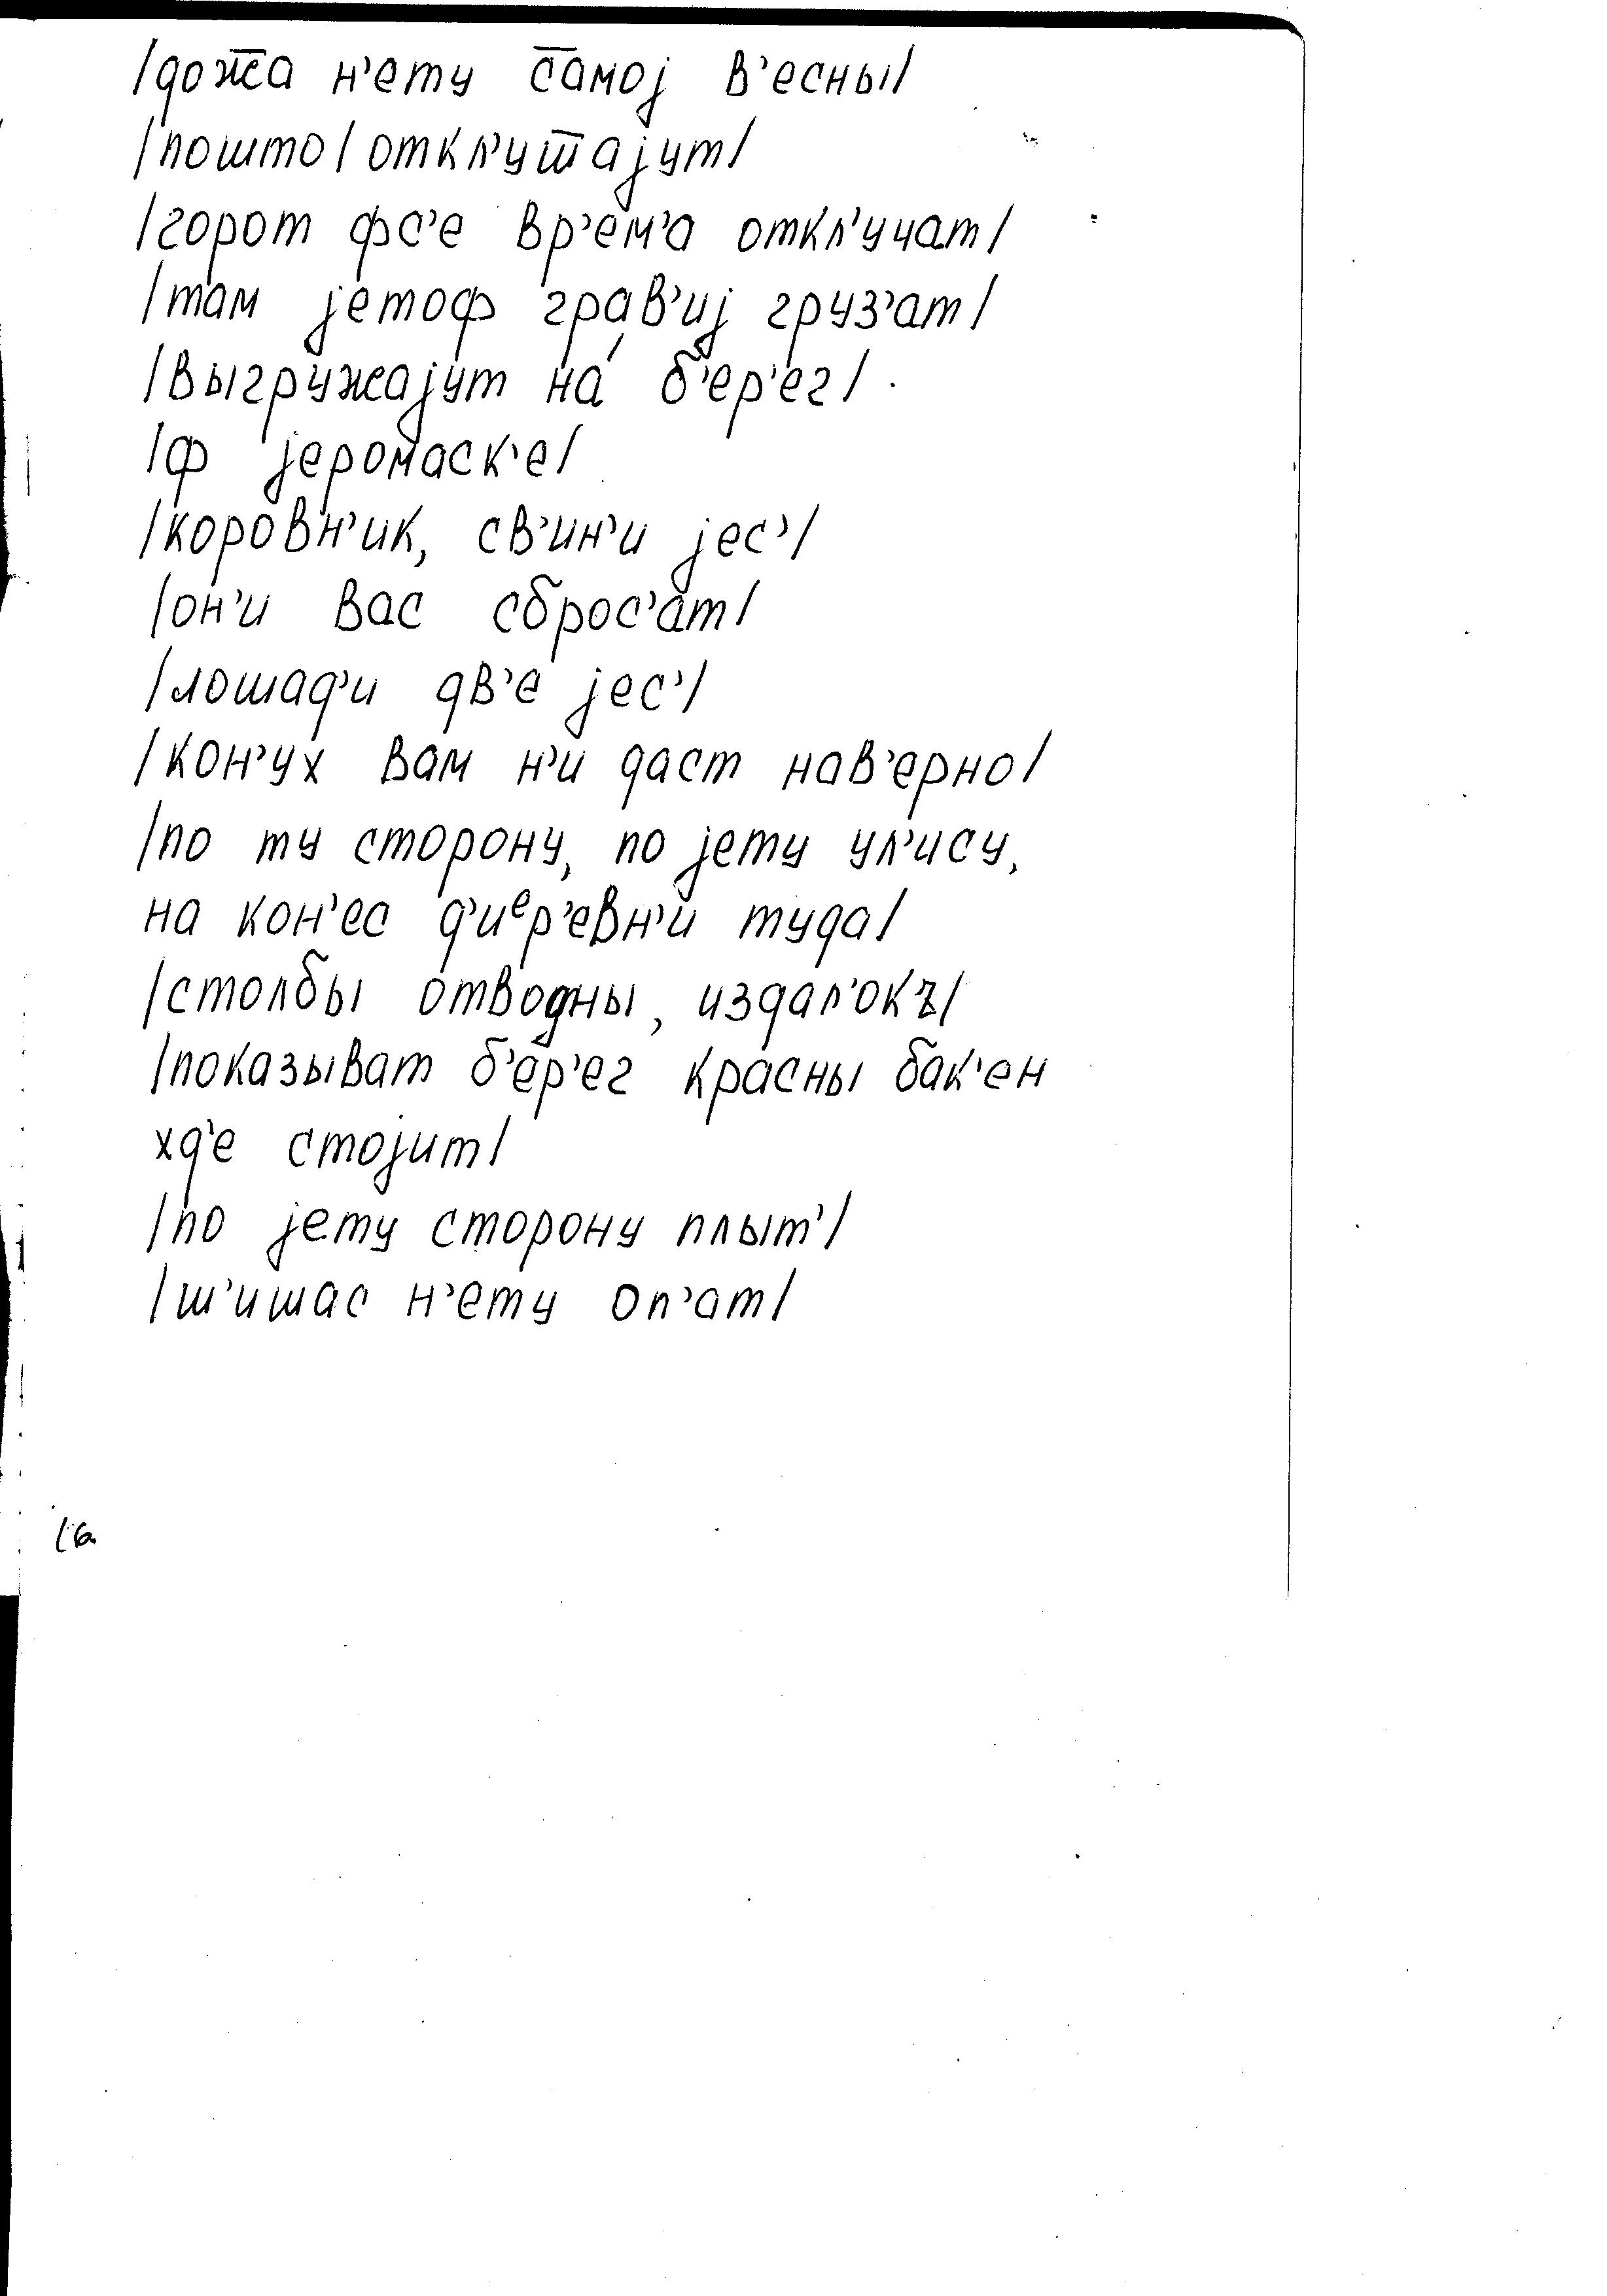 /дож̅а н'ету с̅амој в'есны/
/пошто/откл'уш̅ајут/
/горот фс'е вр'ем'а откл'учат/
/там јетоф грав'иј груз'ат/
/выгружајут на́ б'ер'ег/
/ф јеромаск'е/
/коровн'ик, св'ин'и јес'/
/он'и вас сброс'ат/
/лошад'и дв'е јес'/
/кон'ух вам н'и даст нав'ерно/
/по ту сторону, по јету ул'ису,
на кон'ес д'иᵉр'евн'и туда/
/столбы отводны, издал'окъ/
/показыват б'ер'ег красны бак'ен
хд'е стојит/
/по јету сторону плыт'/
/ш'ишас н'ету оп'ат/